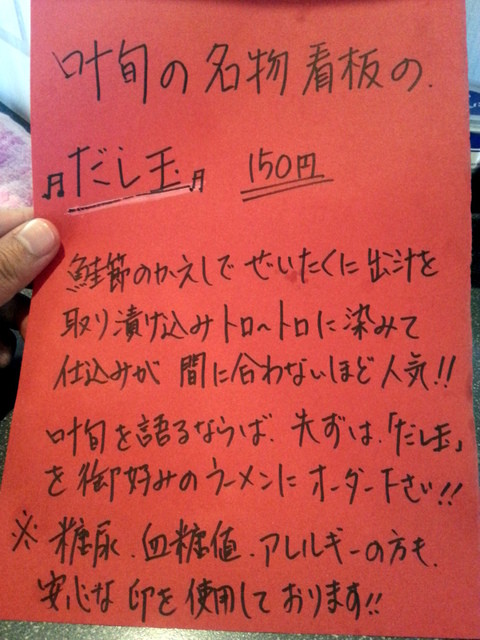 叶旬の名物看板の.
♬だし玉♬ 150円
鮭節のかえしで ぜいたくに出汁を
取り漬け込みトロ〜トロに染みて
仕込みが 間に合わないほど人気!!
叶旬を語るならば、先ずは「だし玉」
を御好みのラーメンにオーダー下さい!!
※糖尿、血糖値、アレルギーの方も、
安心な卵を使用しております!!